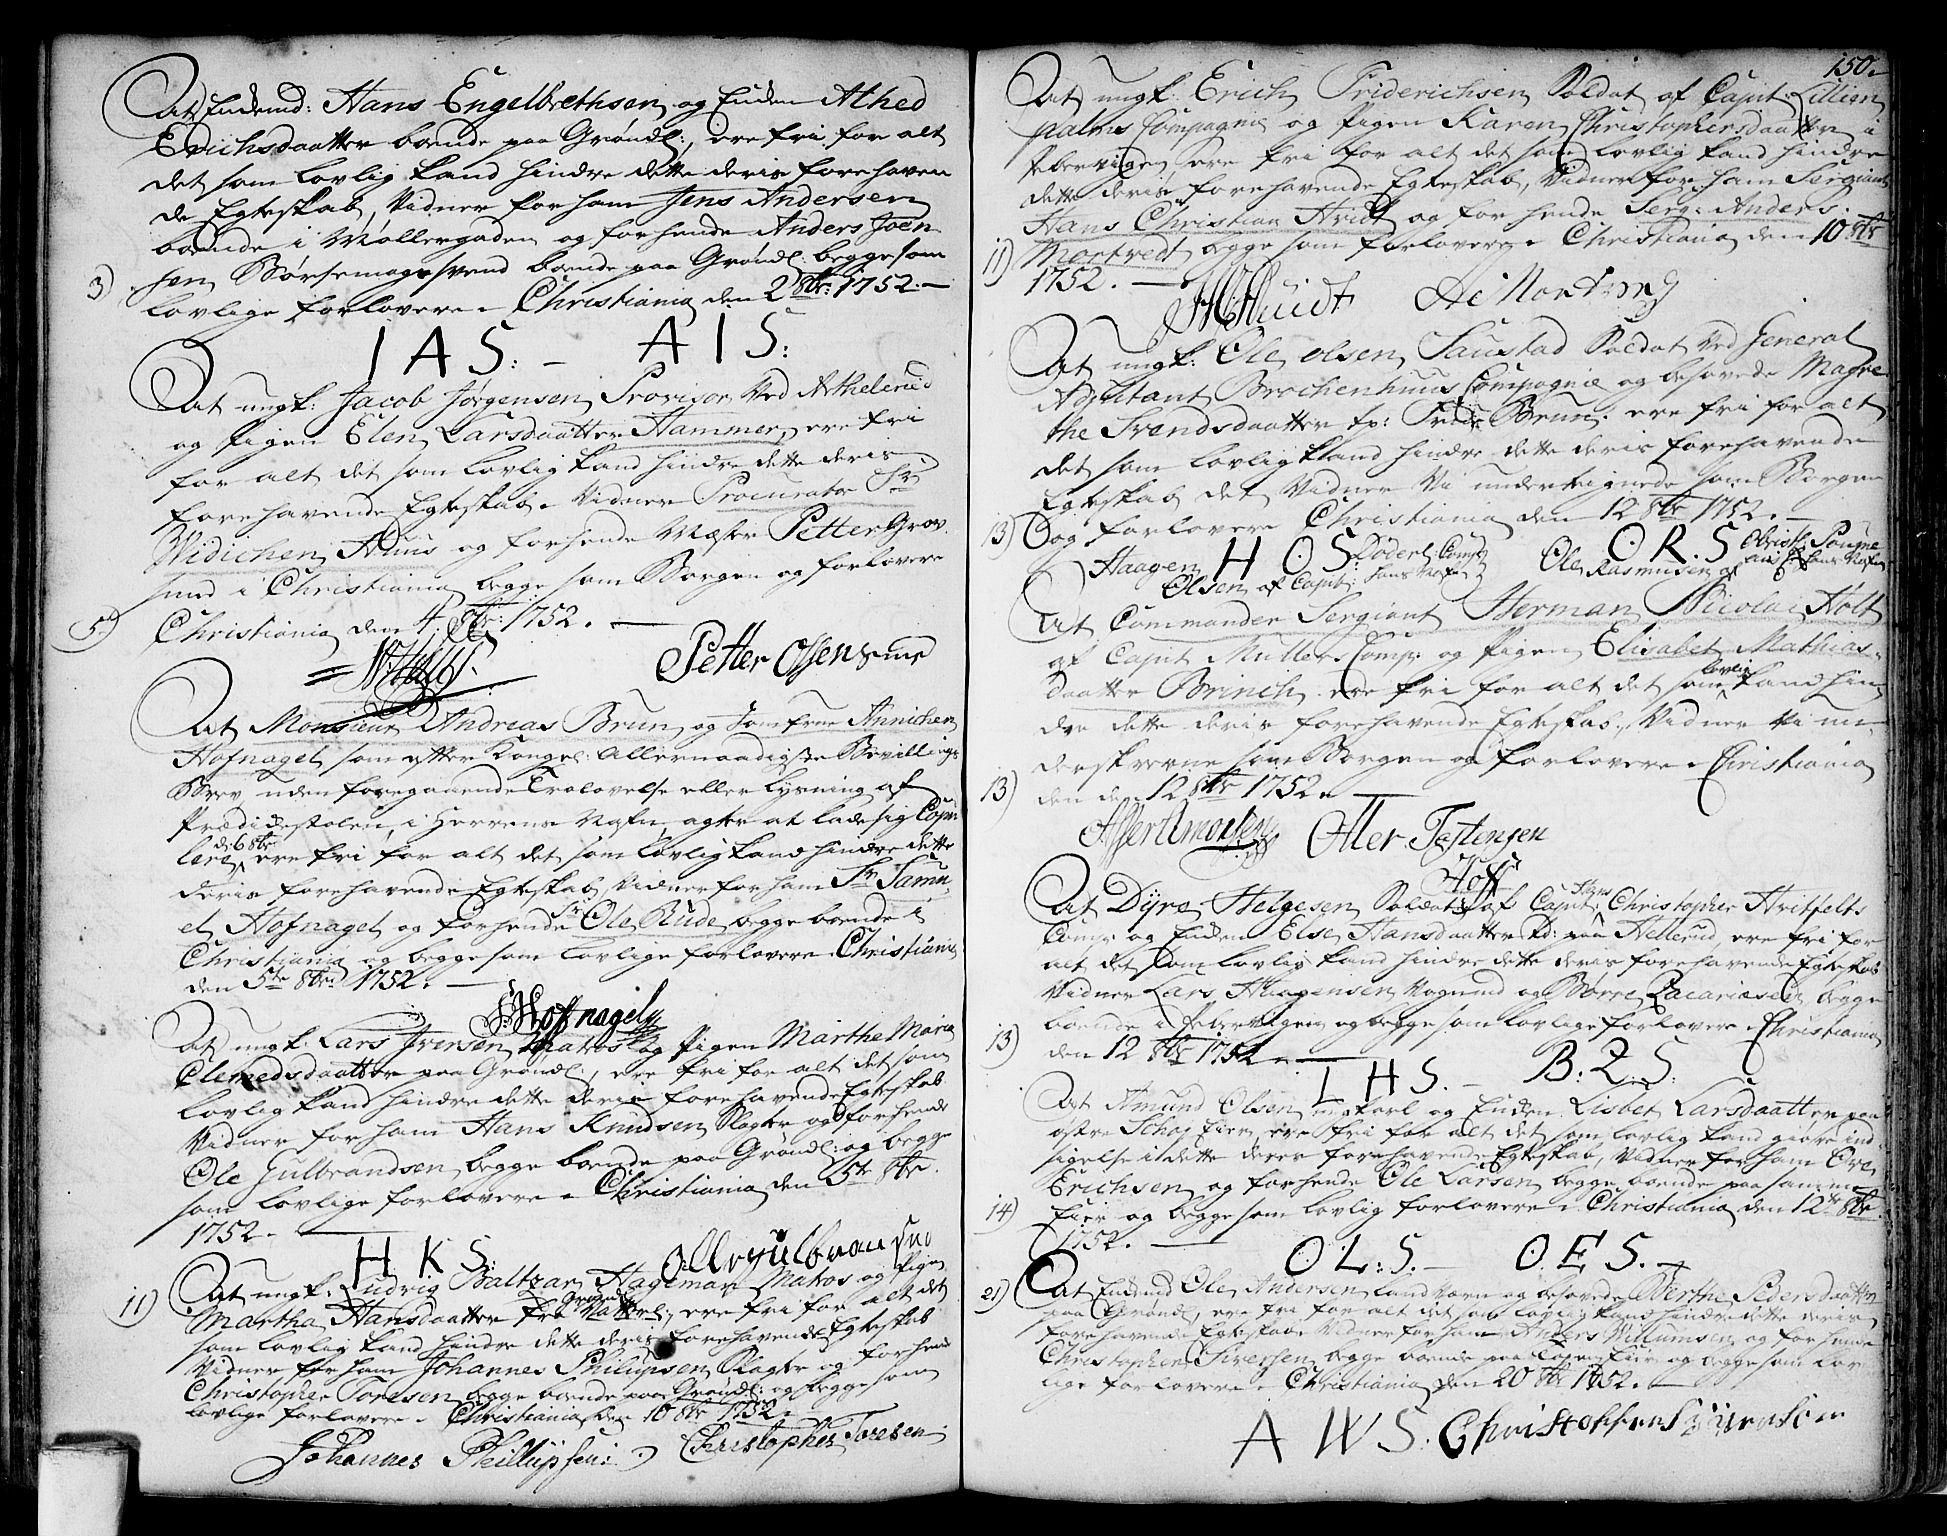 At Enkemd: Hans Engelbrethsen og Enken Alhed
Erichsdaatter boende paa Grønl:, ere fri for alt
det som lovlig kand hindre dette deris forehaven
de Egteskab, Vidner for ham Jens Andersen
boende i Møllergaden og for hende Anders Joen
sen Børsemagersvend boende paa Grønl: begge som
3) lovlige forlovere. Christiania den 2 8br: 1752.
I A S: - A I S:
At ungk: Jacob Jørgensen Provisor Ved Apthelerud
og Pigen Elen Larsdaatter Hammer, ere fri
for alt det som lovlig kand hindre dette deris
forehavende Egteskab. Vidner Procurator Sr
Widichen Huus og for hende Mæster Petter Grov
smed i Christiania, begge som Borgen og forlovere
5) Christiania den 4. 8br: 1752.
Petter Olsen smed
At Monsieur Andreas Brun og Jomfrue Annichen
Hofnagel, som efter Kongel: Allernaadigste Bevillings
Brev uden foregaaende Trolovelse eller Lysning af
Prædikestolen, i Herrens Nafn, agter at lade sig Copu
d: 6 8br
lere, ere fri for alt det som lovlig kand hindre dette
deris forehavende Egteskab, Vidner for ham Sr Samu
el Hofnagel og for hende Sr Ole Rude begge boende i
Christiania og begge som lovlige forlovere. Christiania
den 5te 8br: 1752.
S: Hoffnagel
At ungk: Lars Iversen Matros og Pigen Marthe Maria
Clemedsdaatter paa Grønl:, ere fri for alt det som
lovlig kand hindre dette deris forehavende Egteskab
Vidner for ham Hans Knudsen Slagter og for hende
Ole Gulbrandsen begge boende paa Grønl: og begge
som lovlige forlovere. Christiania den 5te 8br.
1752.
H K S: Olle gulbransen
At ungk: Ludvig Baltzar Hageman Matros og Pigen
11) Martha Hansdaatter fra Vatter:, ere fri for alt det
som lovlig kand hindre dette deris forehavende Egteskab
Vidner for ham Johannes Philipsen Slagter og for hende
Christopher Toresen begge boende paa Grønl: og begge som
lovlige forlovere. Christiania den 10 8br 1752.
Johannes Phillipsen: Christopher Toresen
150.
At ungk: Erich Friderichsen Soldat af Capit: Lillien
palms Compagnie og Pigen Karen Christophersdaatter i
Pebervigen, ere fri for alt det som lovlig kand hindre
dette deris forehavende Egteskab, Vidner for ham Sergiant
Hans Christian Hvidt og for hende Serg: Anders
11) Mortvedt begge som forlovere. Christiania den 10 8br
1752.
H C Huidt
At ungk: Ole Olsen Saustad Soldat ved General
Adjutant Brochenhuus Compagnie og besovede Magre
the Svendsdaatter tp: Fridr Brun: ere fri for alt
det som lovlig kand hindre dette deris forehavende
Egteskab det Vidner Vi undertegnede som Borgen
13) og forlovere Christiania den 12 8br 1752.
H O S. O R. S
Haagen Olsen af Capit: Røderl: Comp: Hans Nafn Ole Rasmusen af
At Commander Sergiant Herman Nicolai Holt
af Capit Mullers Comp: og Pigen Elisabet Mathias-
lovlig
daatter Brinch. ere fri for alt det som kand hin
dre dette deris forehavende Egteskab, Vidner Vi un
derskrevne som Borgen og forlovere. Christiania
13) den den 12 8br 1752.
Asser Amonsen Otter Tostensen
Hoff
At Dyre Helgesen Soldat af Capit: Hans Christopher Hvitfelts
Comp: og Enken Else Hansdaatter td: paa Kellerud, ere fri for
alt det som lovlig kand hindre dette deris forehavende Egteskab
Vidner Lars Haagensen Vognmd og Børre Zacariasen begge
boende i Pebervigen, og begge som lovlige forlovere. Christiania
13) den 12 8br 1752.
L H S. - B: Z: S:
At Amund Olsen ungkarl og Enken Lisbet Larsdaatter paa
østre Schoj Eier, ere fri for alt det som lovlig kand giøre ind
sigelse i dette deres forehavende Egteskab, Vidner for ham Ove
Erichsen og for hende Ole Larsen begge boende paa samme
14) Eier og begge som lovlig forlovere. Christiania den 12te 8br.
1752.
O L: S. - O. E S.
21) At Enkemd Ole Andersen land Værn og besovede Berthe Pedersdaatter
paa Grønl, ere fri for alt det som lovlig kand hindre dette deris
forehavende Egteskab. Vidner for ham Anders Willumsen og for hende
Christopher Siversen begge boende paa Eier og begge som lov
lige forlovere. Christiania den 20 8br 1752.
A W S: Christopher Siversen